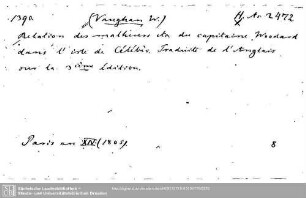 1390 (Vaughan W.) H. As. 2472
Relation des malheurs etc. du capitaine Woodard
dans l'isle de Célébes. Traduite de l'Anglais
sur la 3ième Édition.
Paris an XIII (1805). 8
Sächsische Landesbibliothek –
Staats- und Universitätsbibliothek Dresden